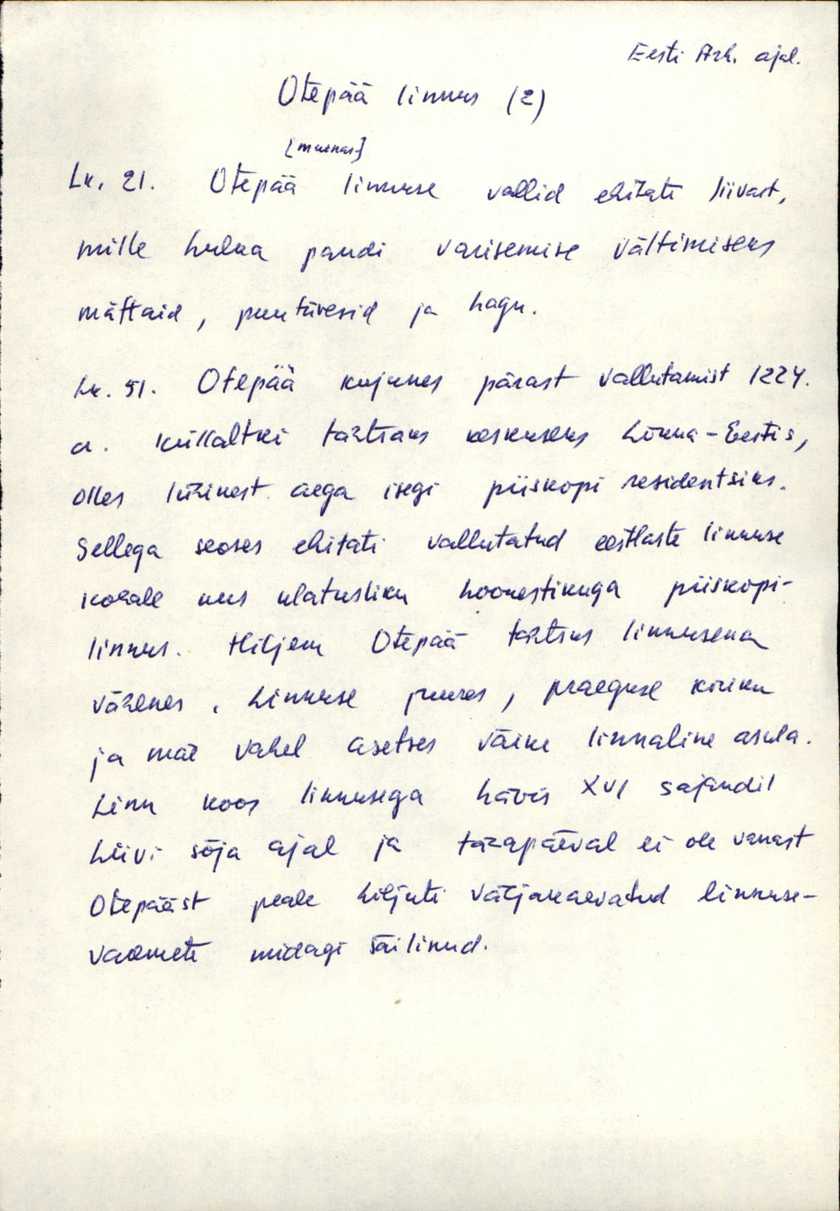 Eesti Arh. ajal.
Otepää linnus (2)
[muinas]
Lk. 21. Otepää linnuse vallid ehitati liivast,
mille hulka pandi varisemise vältimiseks
mättaid, puutüvesid ja hagu.
Lk. 51. Otepää kujunes pärast vallutamist 1224.
a. küllaltki tähtsaks keskuseks Lõuna-Eestis,
olles lühikest aega isegi piiskopi residentsiks.
Sellega seoses ehitati vallutatud eestlaste linnuse
kohale uus ulatusliku hoonestikuga piiskopi-
linnus. Hiljem Otepää tähtsus linnusena
vähenes. Linnuse juures, praeguse kiriku
ja mäe vahel asetses väike linnaline asula.
Linn koos linnusega hävis XVI sajandil
Liivi sõja ajal ja tänapäeval ei ole vanast
Otepääst peale hiljuti väljakaevatud linnuse-
varemete midagi säilinud.